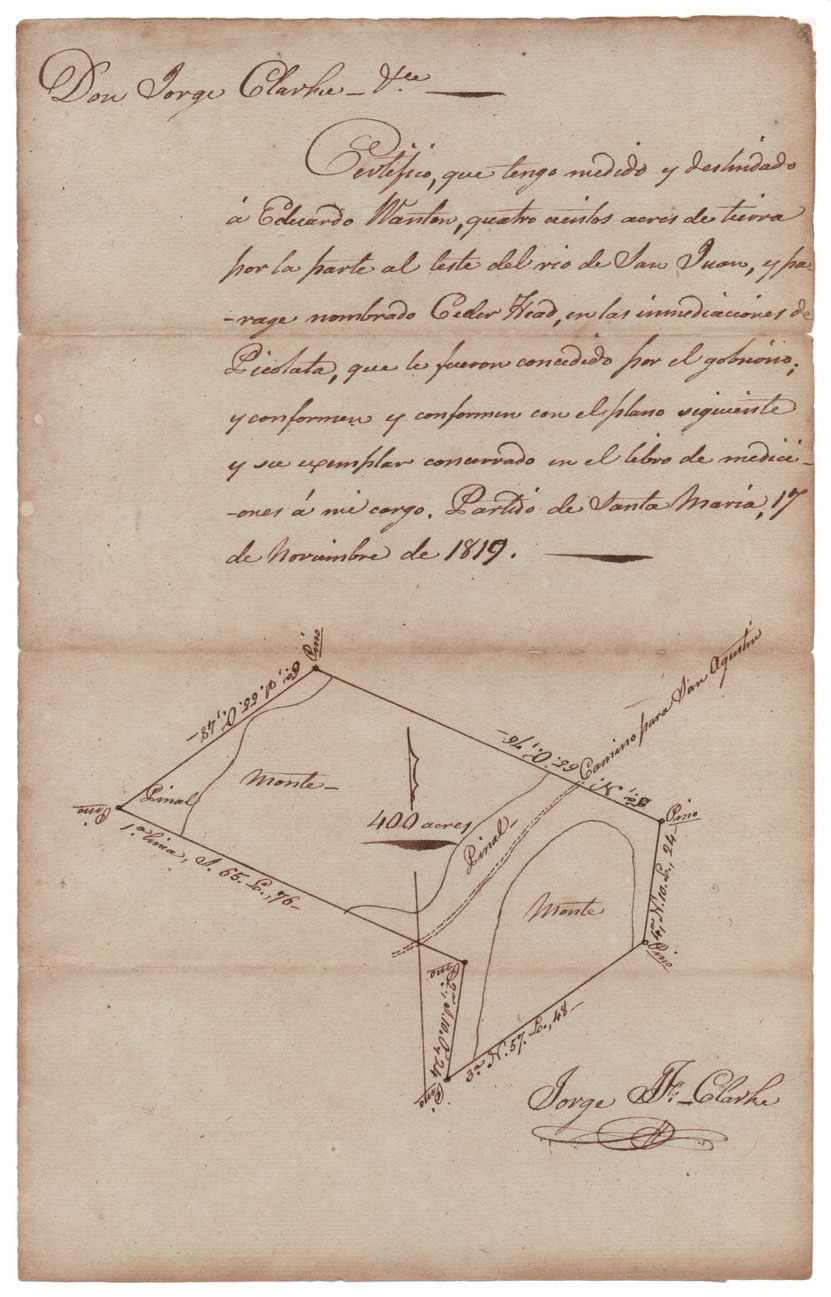 Don Jorge Clarke – &ce
Certifico, que tengo medido y deslindado
á Eduardo Wanton, quatro cientos acres de tierra
por la parte al leste del rio de San Juan, y pa
-rage nombrado Ceder Head, en las inmediaciones de
Picolata, que le fueron concedido por el gobierno;
y conformen y conformen con el plano siguiente
y su exemplar concervado en el libro de medici-
-ones á mi cargo. Partido de Santa Maria, 17
de Noviembre de 1819.
Pino
6a, S. 55. O., 48–
Camino para San Agustin
5a, N. 65. O., 76–
Monte–
Pinal
Pino
400 acres
Pinal–
Pino
1.a linia, S. 65. L., 76–
Monte
4a, N. 10. L., 24–
Pino
Pino
2a, S. 10. O., 24
3a N. 57. L., 48–
Pino
Jorge J. F. Clarke